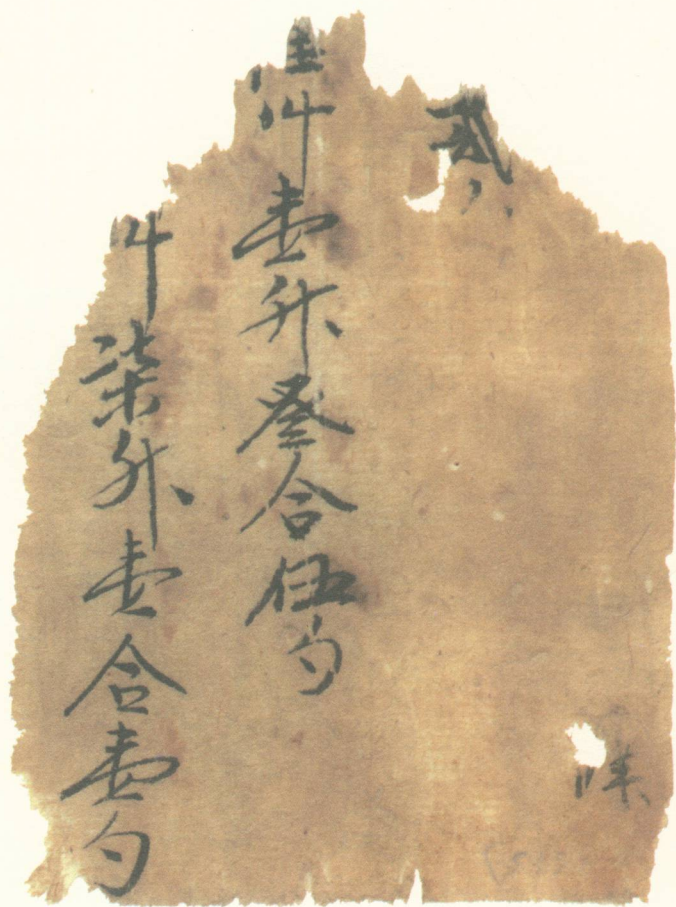 貳
斗壹升叁合伍勺
斗柒升壹合壹勺